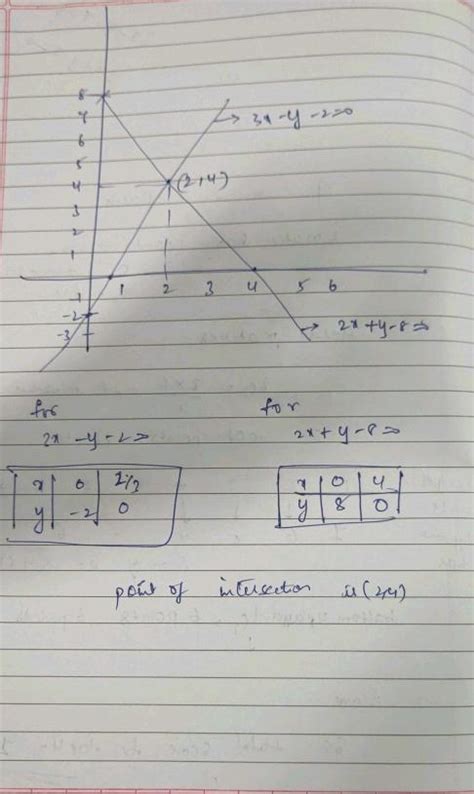 8
7
6
5
4
3
2
1
-1
-2
-3
1 2 3 4 5 6
3x-y-2=0
(2,4)
2x+y-8=
for
3x-y-2=
x 0 2/3
y -2 0
for
2x+y-8=
x 0 4
y 8 0
point of intersection is (2,4)